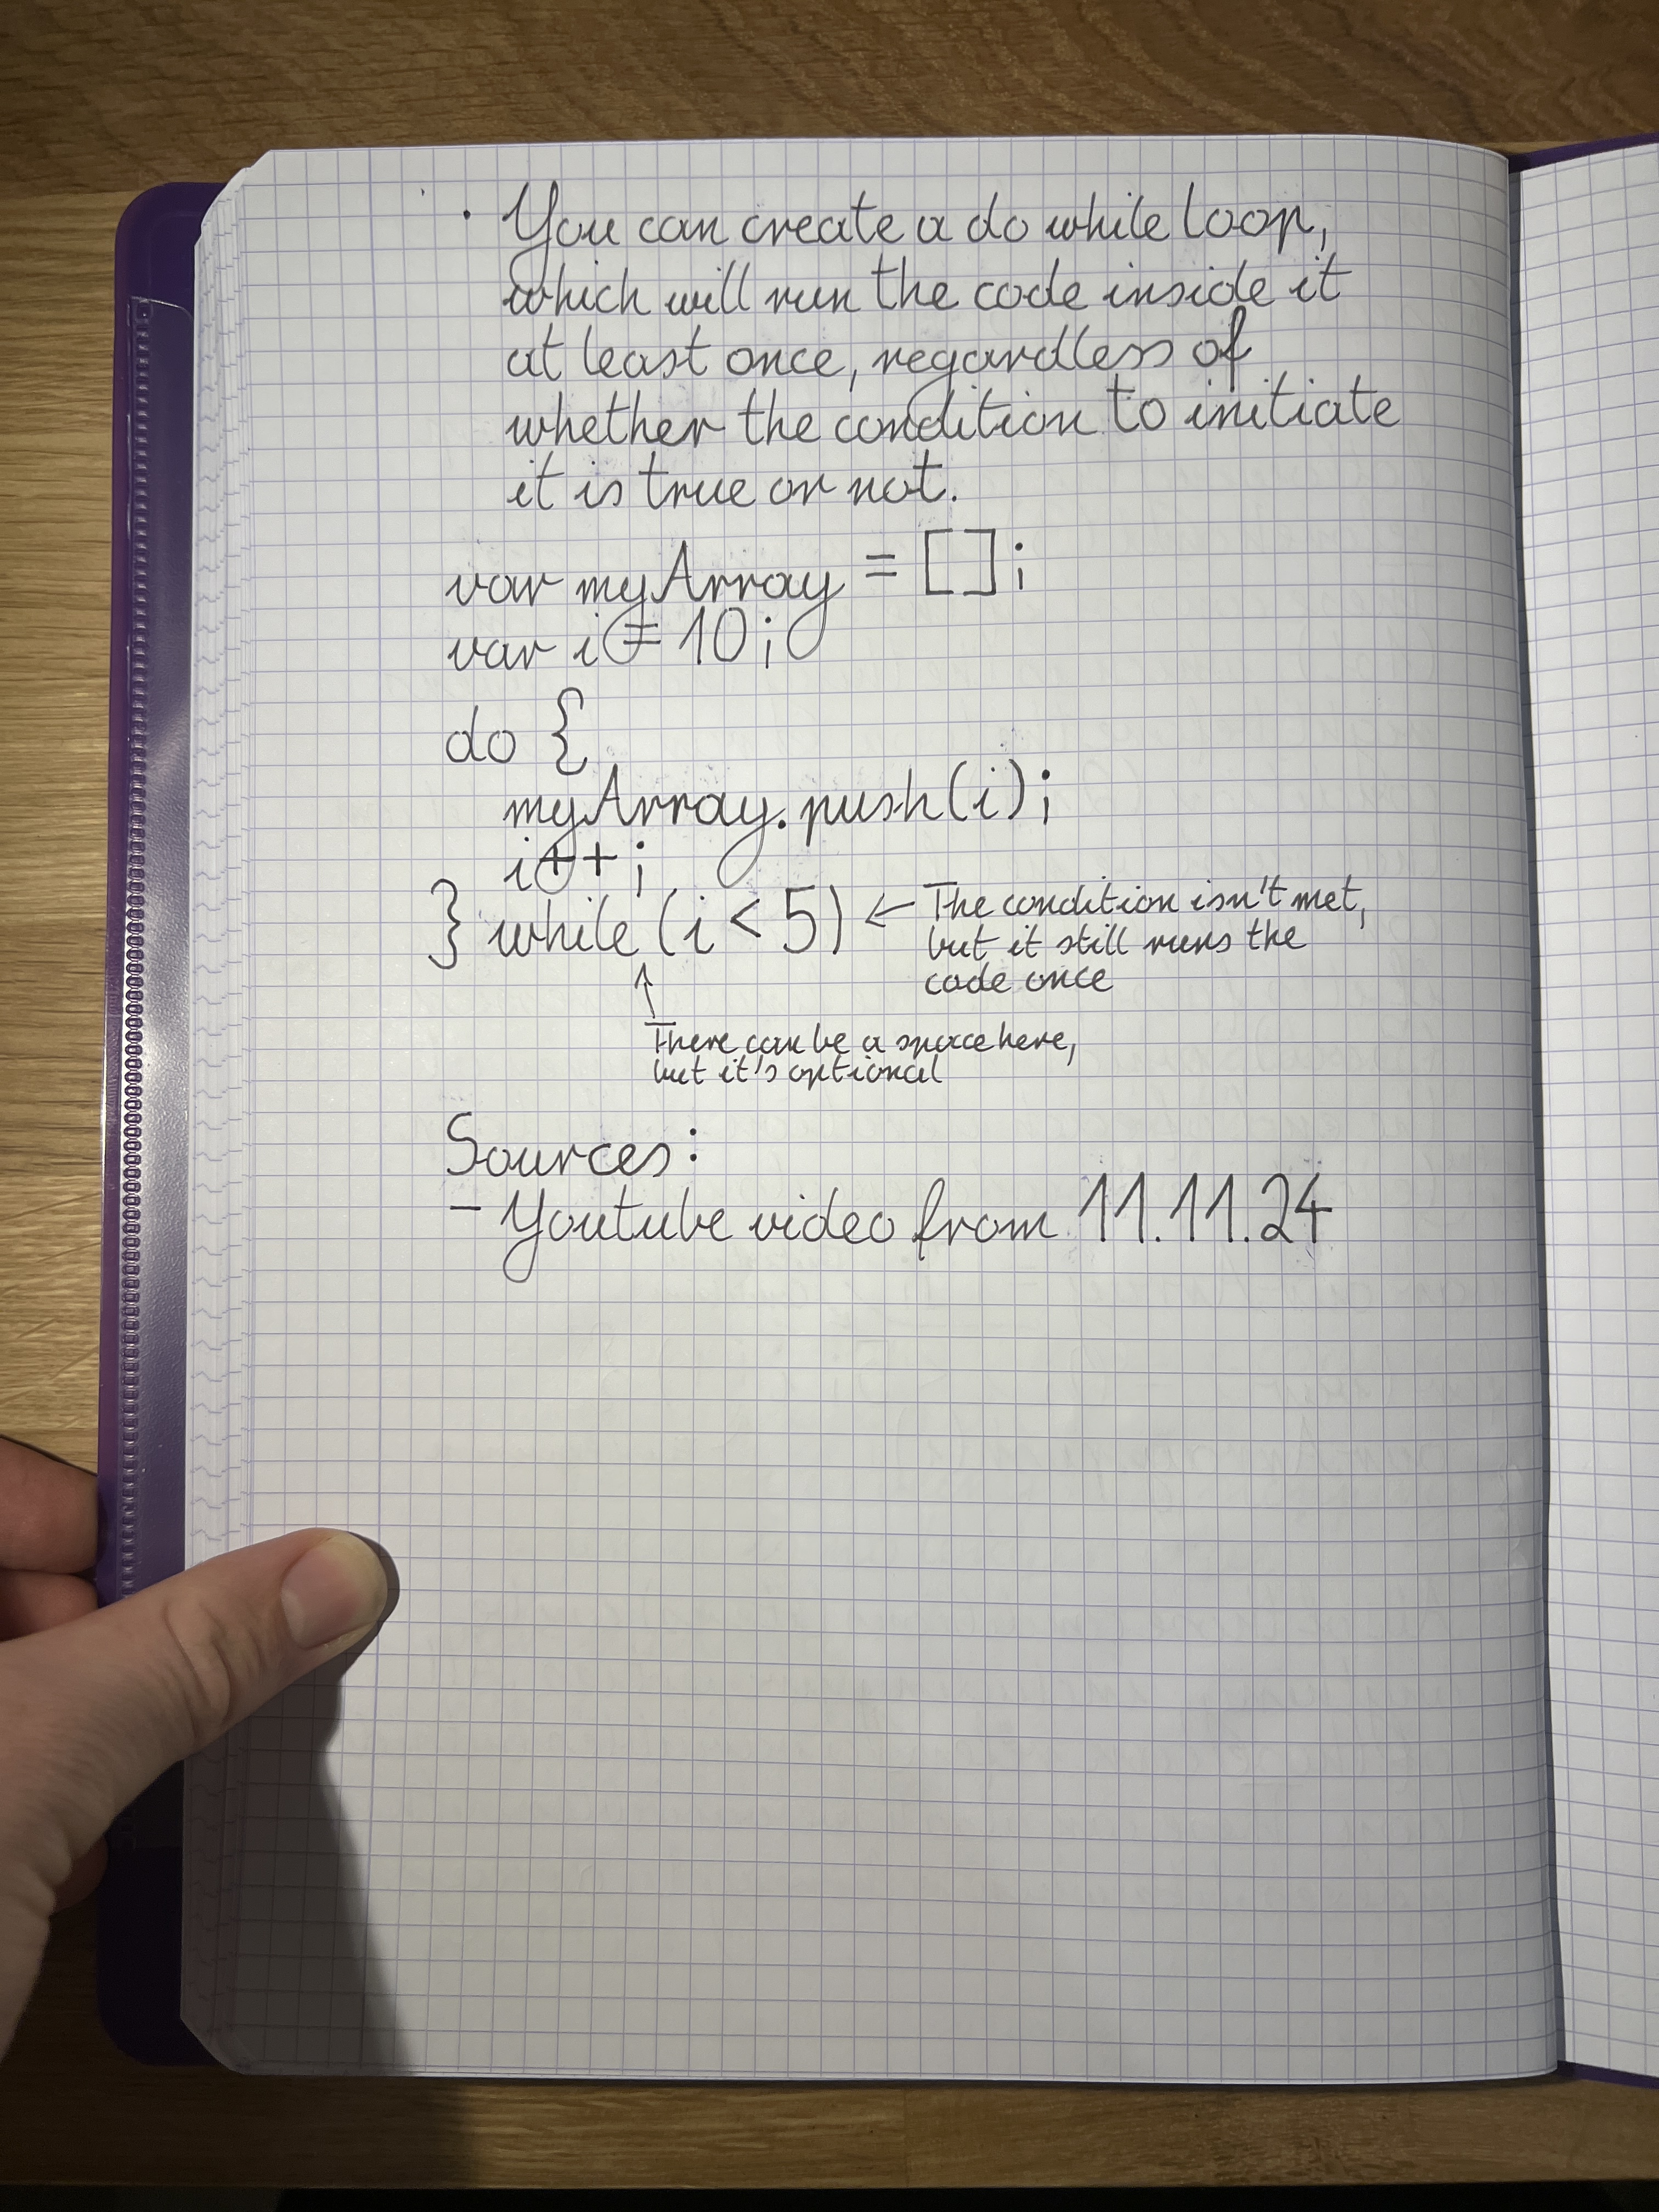 · You can create a do while loop,
which will run the code inside it
at least once, regardless of
whether the condition to initiate
it is true or not.
var myArray = [];
var i = 10;
do {
myArray.push(i);
i++;
} while (i < 5) ← The condition isn't met,
but it still runs the
code once
↑
There can be a space here,
but it's optional
Sources:
- Youtube video from 11.11.24